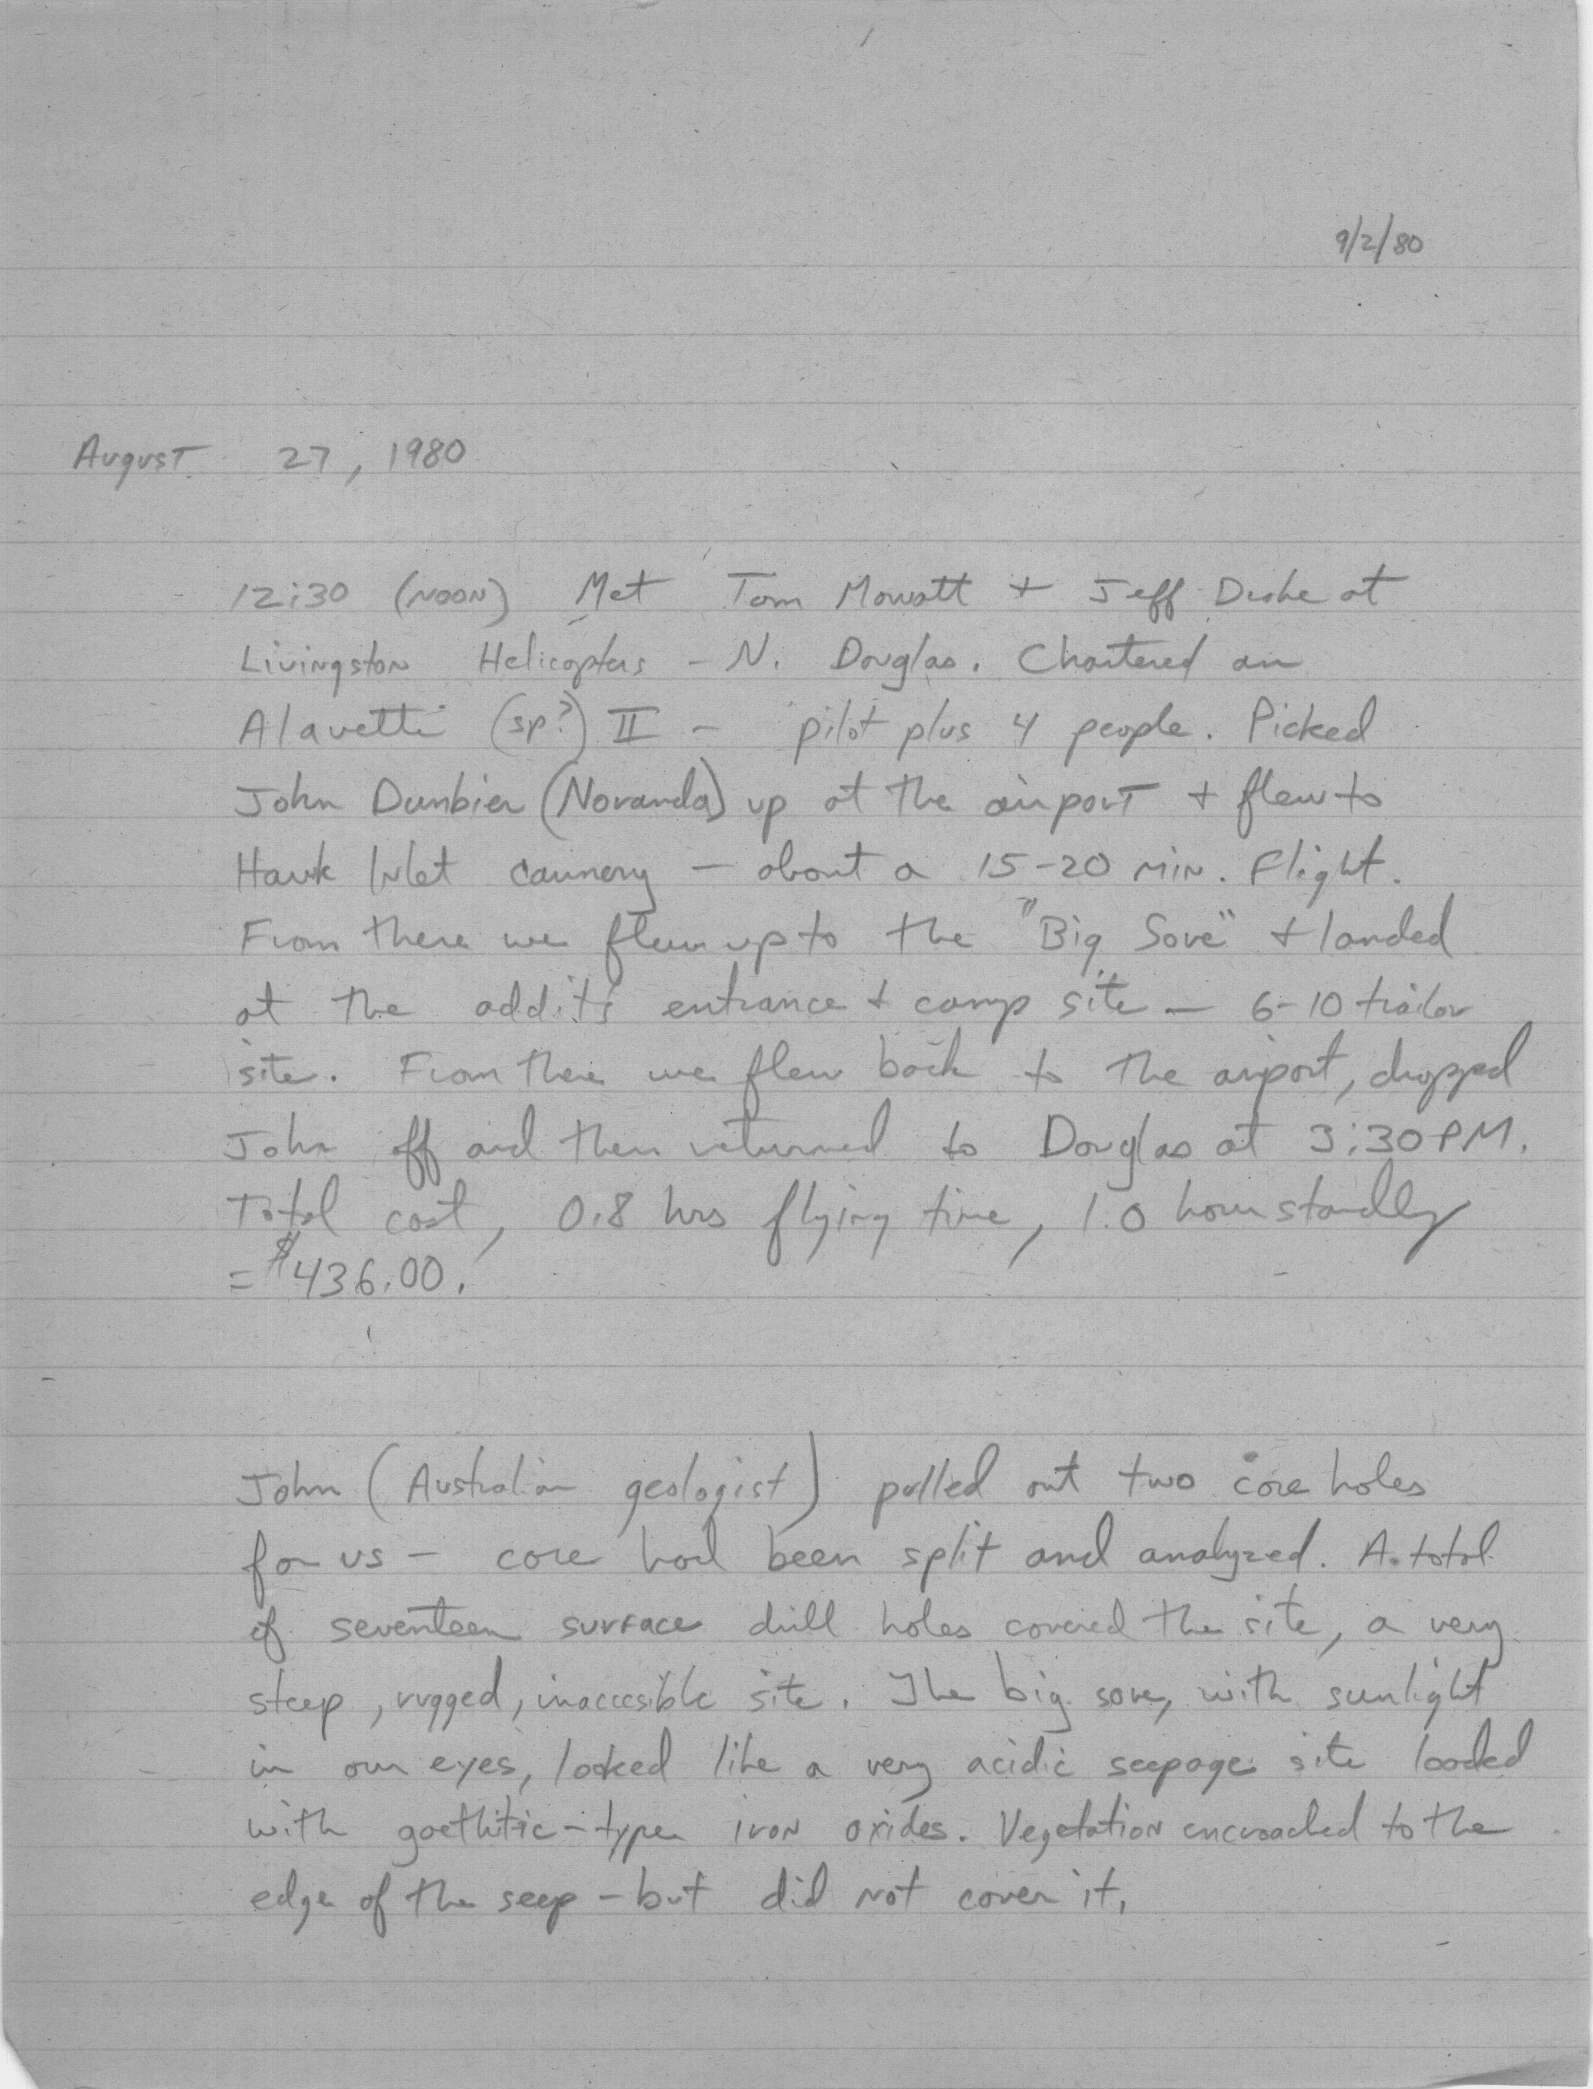 9/2/80
August 27, 1980
12:30 (NOON) Met Tom Mowatt + Jeff at
Livingston Helicopters - N. Douglas. Chartered an
Alavetti (sp?) II - pilot plus 4 people. Picked
John Dunbier (Noranda) up at the airport + flew to
Hawk Inlet cannery - about a 15-20 min. flight.
From there we flew up to the "Big Sore" + landed
at the addit's entrance + camp site - 6-10 trailor
site. From there we flew back to the airport, dropped
John off and then returned to Douglas at 3:30 PM.
Total cost, 0.8 hrs flying time, 1.0 hour standby
= $436.00.
John (Australian geologist) pulled out two core holes
for us - core had been split and analyzed. A total
of seventeen surface drill holes covered the site, a very
steep, rugged, inaccesible site. The big sore, with sunlight
in our eyes, looked like a very acidic seepage site loaded
with goethitic-type iron oxides. Vegetation encroached to the
edge of the seep - but did not cover it.